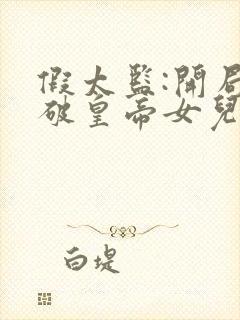 假太監:開局
破皇帝女兒
白堤